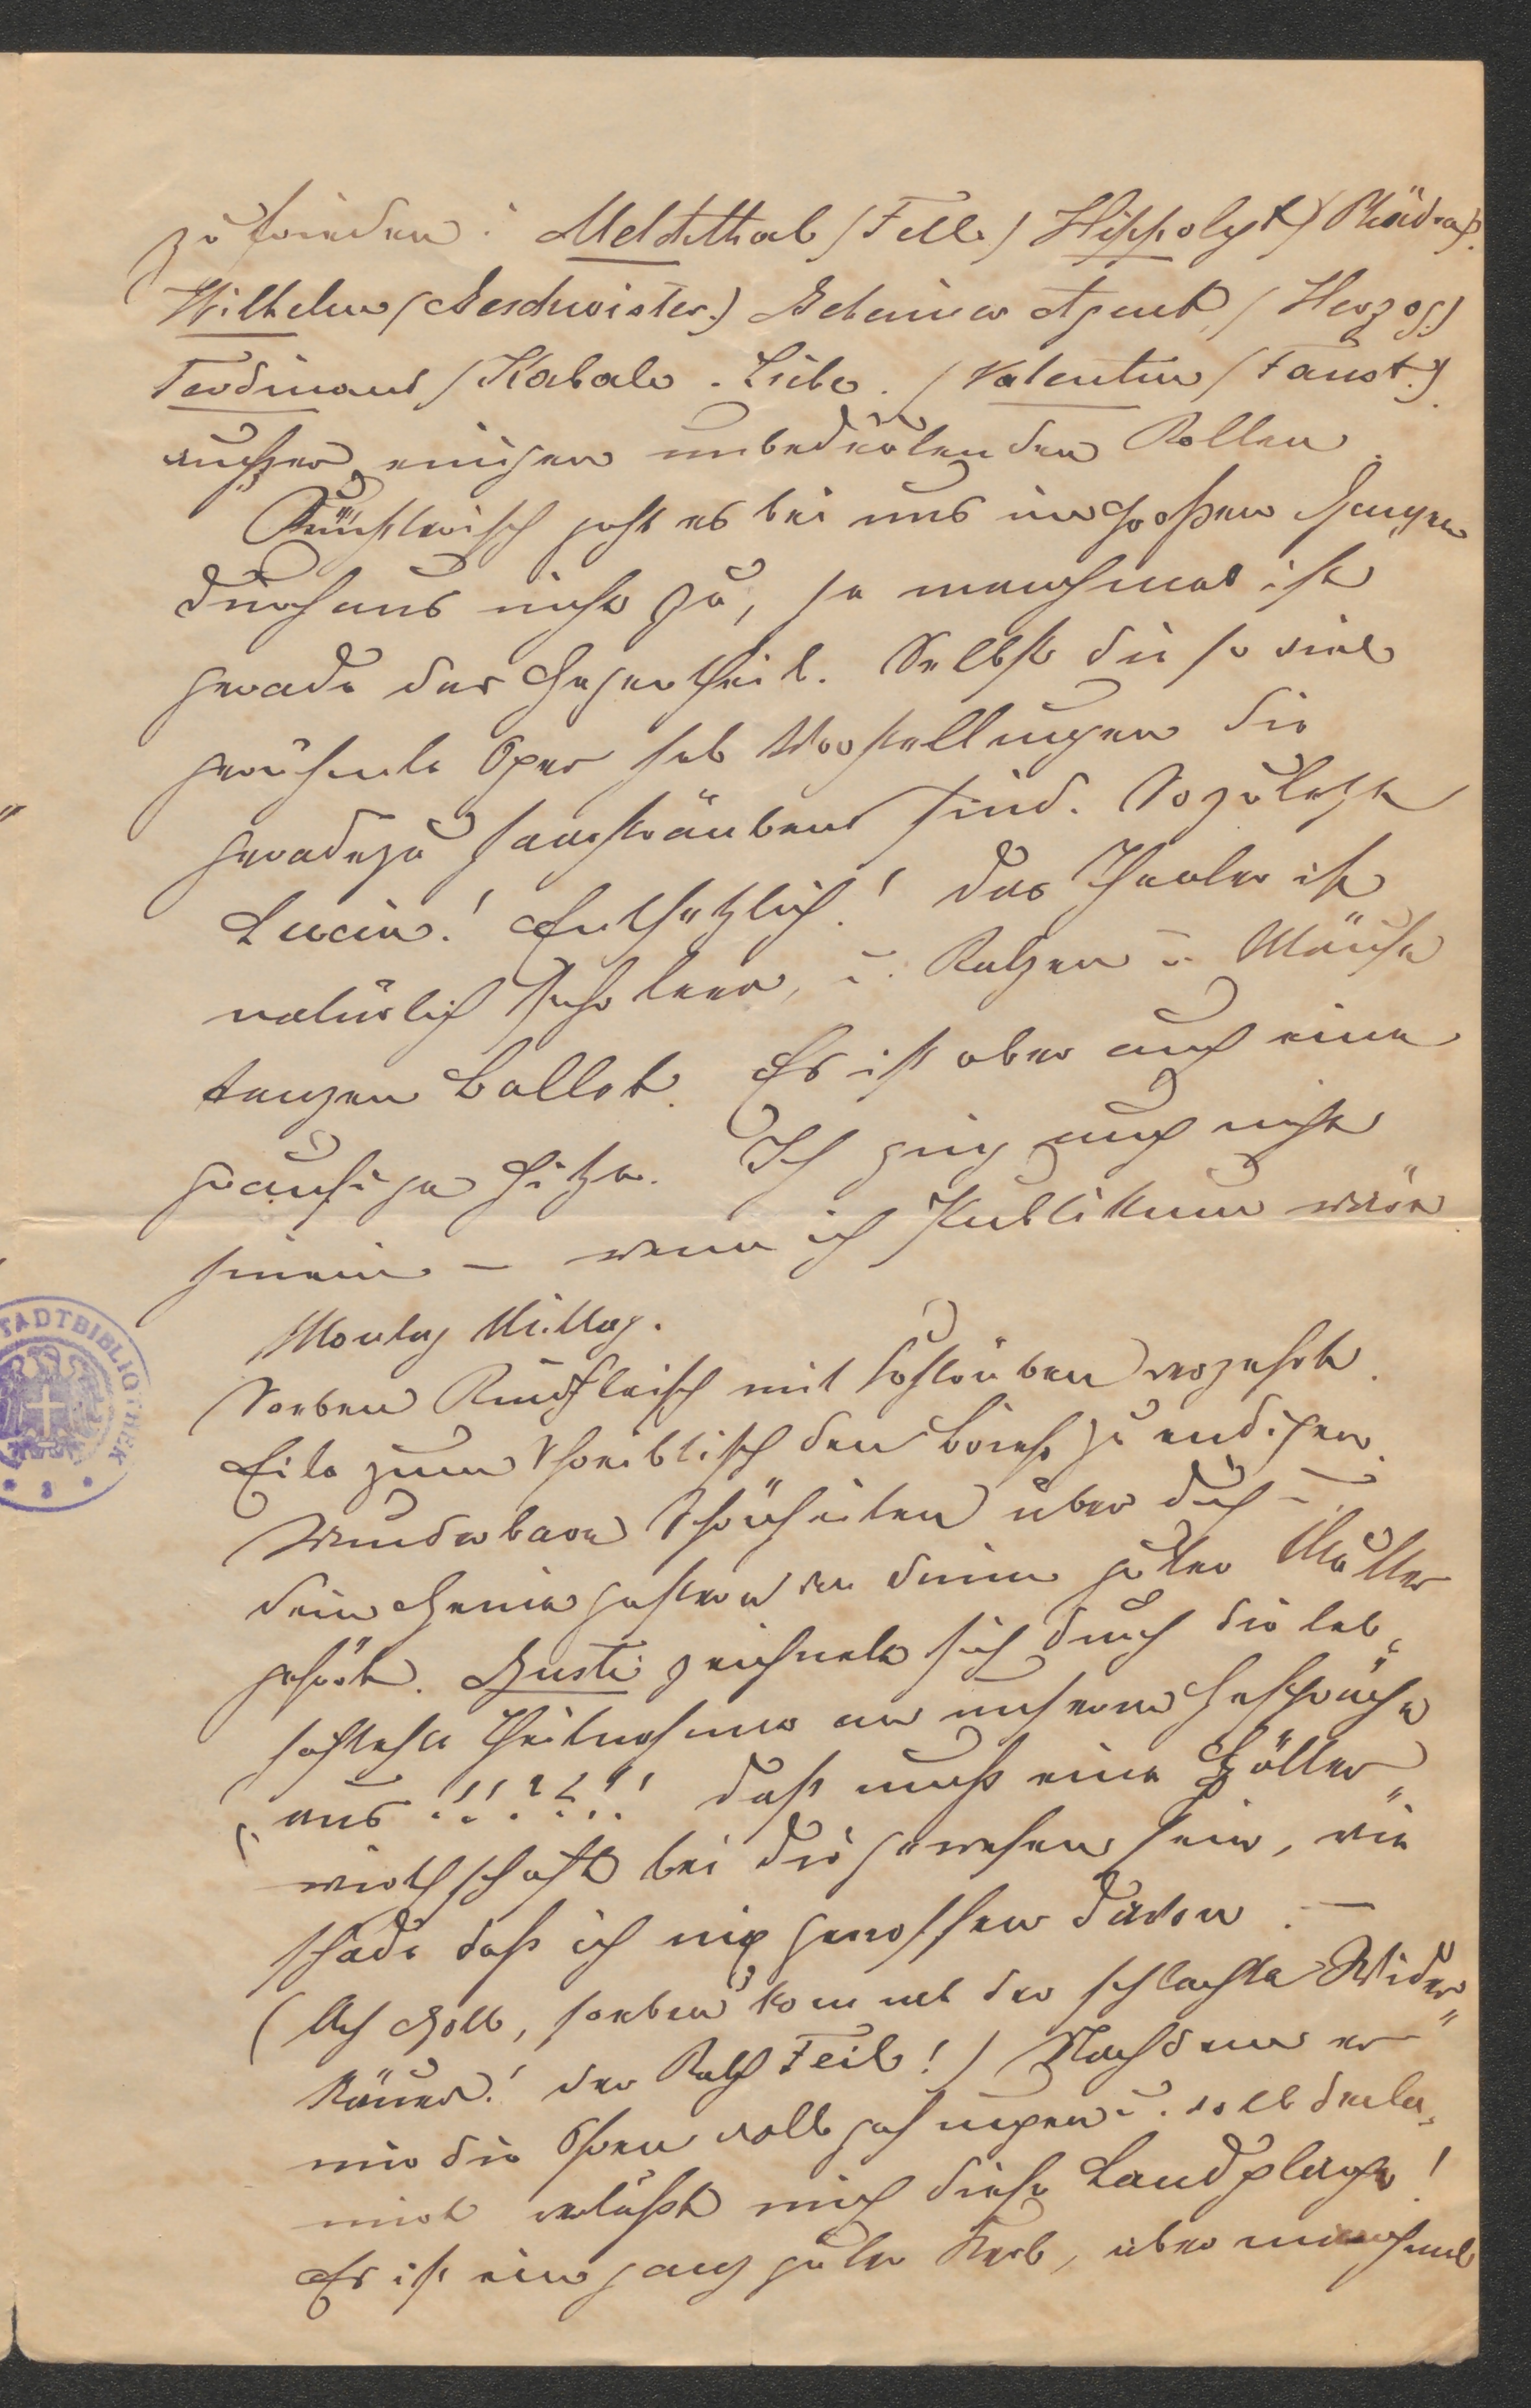 zufrieden: Melchthal (Tell.) Hippolyt (Phädra).
Wilhelm (Geschwister.) Geheimer Agent (Herzog.)
Ferdinand (Kabale. Liebe.) Valentin (Faust.)
außer einigen unbedeutenden Rollen.
Künstlerisch geht es bei uns im Großen Ganzen
durchaus nicht zu, ja manchmal ist
gerade das Gegentheil. Selbst die so viel
gerühmte Oper hat Vorstellungen die
geradezu haarsträubend sind. So zuletzt
Lucia! Entsetzlich! Das Theater ist
natürlich sehr leer, u. Ratzen u. Mäuse
tanzen Ballet. Es ist aber auch eine
grausige Hitze. Ich ging auch nicht
hinein – wenn ich Publikum wäre
Montag Mittag.
Soeben Rindfleisch mit verzehrt.
Eile zum Schreibtisch den Brief zu endigen.
Wunderbare Schönheiten über dich u.
dein Genie gestern von deiner guten Mutter
gehört. Gusti zeichnete sich durch die leb-
hafteste Theilnahme an unserem Gespräche
aus !!!??!! Daß muß eine Götter-
wirthschaft bei dir gewesen sein, wie
schade daß ich nix genossen davon. –
(Ach Gott, soeben kommt der schlechte Wieder-
käuer! der Ralf Feil!) Nachdem er
mir die Ohren voll gesungen u. voll decla-
mirt verläßt mich diese Landplage!
Er ist ein ganz guter Kerl, aber manchmal
STADTBIBLIOTHEK
* 3 *